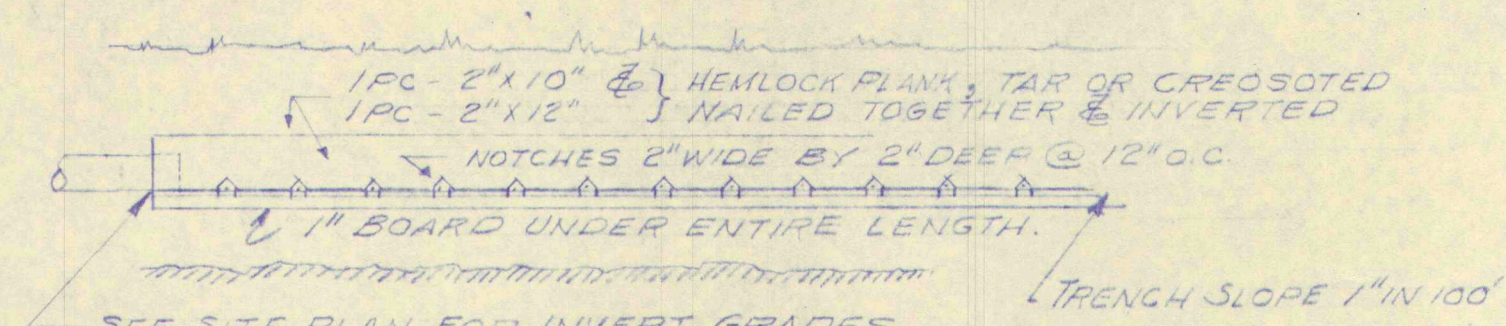 1 PC - 2" X 10" & } HEMLOCK PLANK, TAR OR CREOSOTED
1 PC - 2" X 12" } NAILED TOGETHER & INVERTED
NOTCHES 2" WIDE BY 2" DEEP @ 12" O.C.
1" BOARD UNDER ENTIRE LENGTH.
TRENCH SLOPE 1" IN 100'
SEE SITE PLAN FOR INVERT GRADES